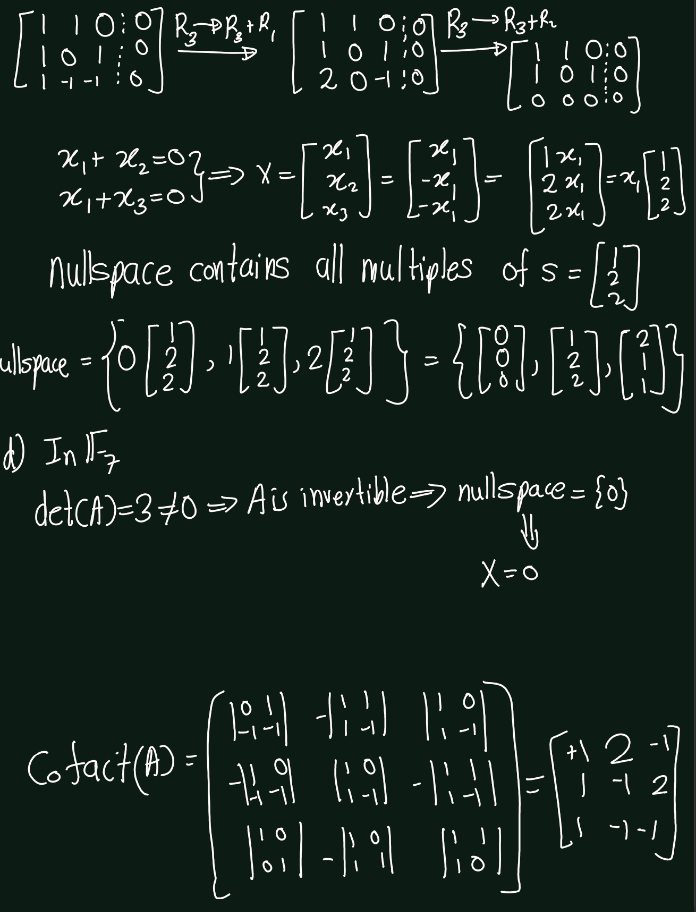 [1 1 0 ⋮ 0; 1 0 1 ⋮ 0; 1 -1 -1 ⋮ 0] R₃→R₃+R₁ [1 1 0 ⋮ 0; 1 0 1 ⋮ 0; 2 0 -1 ⋮ 0] R₃→R₃+R₂ [1 1 0 ⋮ 0; 1 0 1 ⋮ 0; 0 0 0 ⋮ 0]
x₁+x₂=0
x₁+x₃=0 } ⇒ X = [x₁; x₂; x₃] = [x₁; -x₁; -x₁] = [1x₁; 2x₁; 2x₁] = x₁[1; 2; 2]
nullspace contains all multiples of s = [1; 2; 2]
ullspace = {0[1; 2; 2], 1[1; 2; 2], 2[1; 2; 2]} = {[0; 0; 0], [1; 2; 2], [2; 1; 1]}
d) In 𝔽₇
det(A)=3≠0 ⇒ A is invertible ⇒ nullspace = {0}
⇓
X=0
Cofact(A) = [|0 1; -1 -1| -|1 1; 1 -1| |1 0; 1 -1|; -|1 0; -1 -1| |1 0; 1 -1| -|1 1; 1 -1|; |1 0; 0 1| -|1 0; 1 1| |1 1; 1 0|] = [+1 2 -1; 1 -1 2; 1 -1 -1]